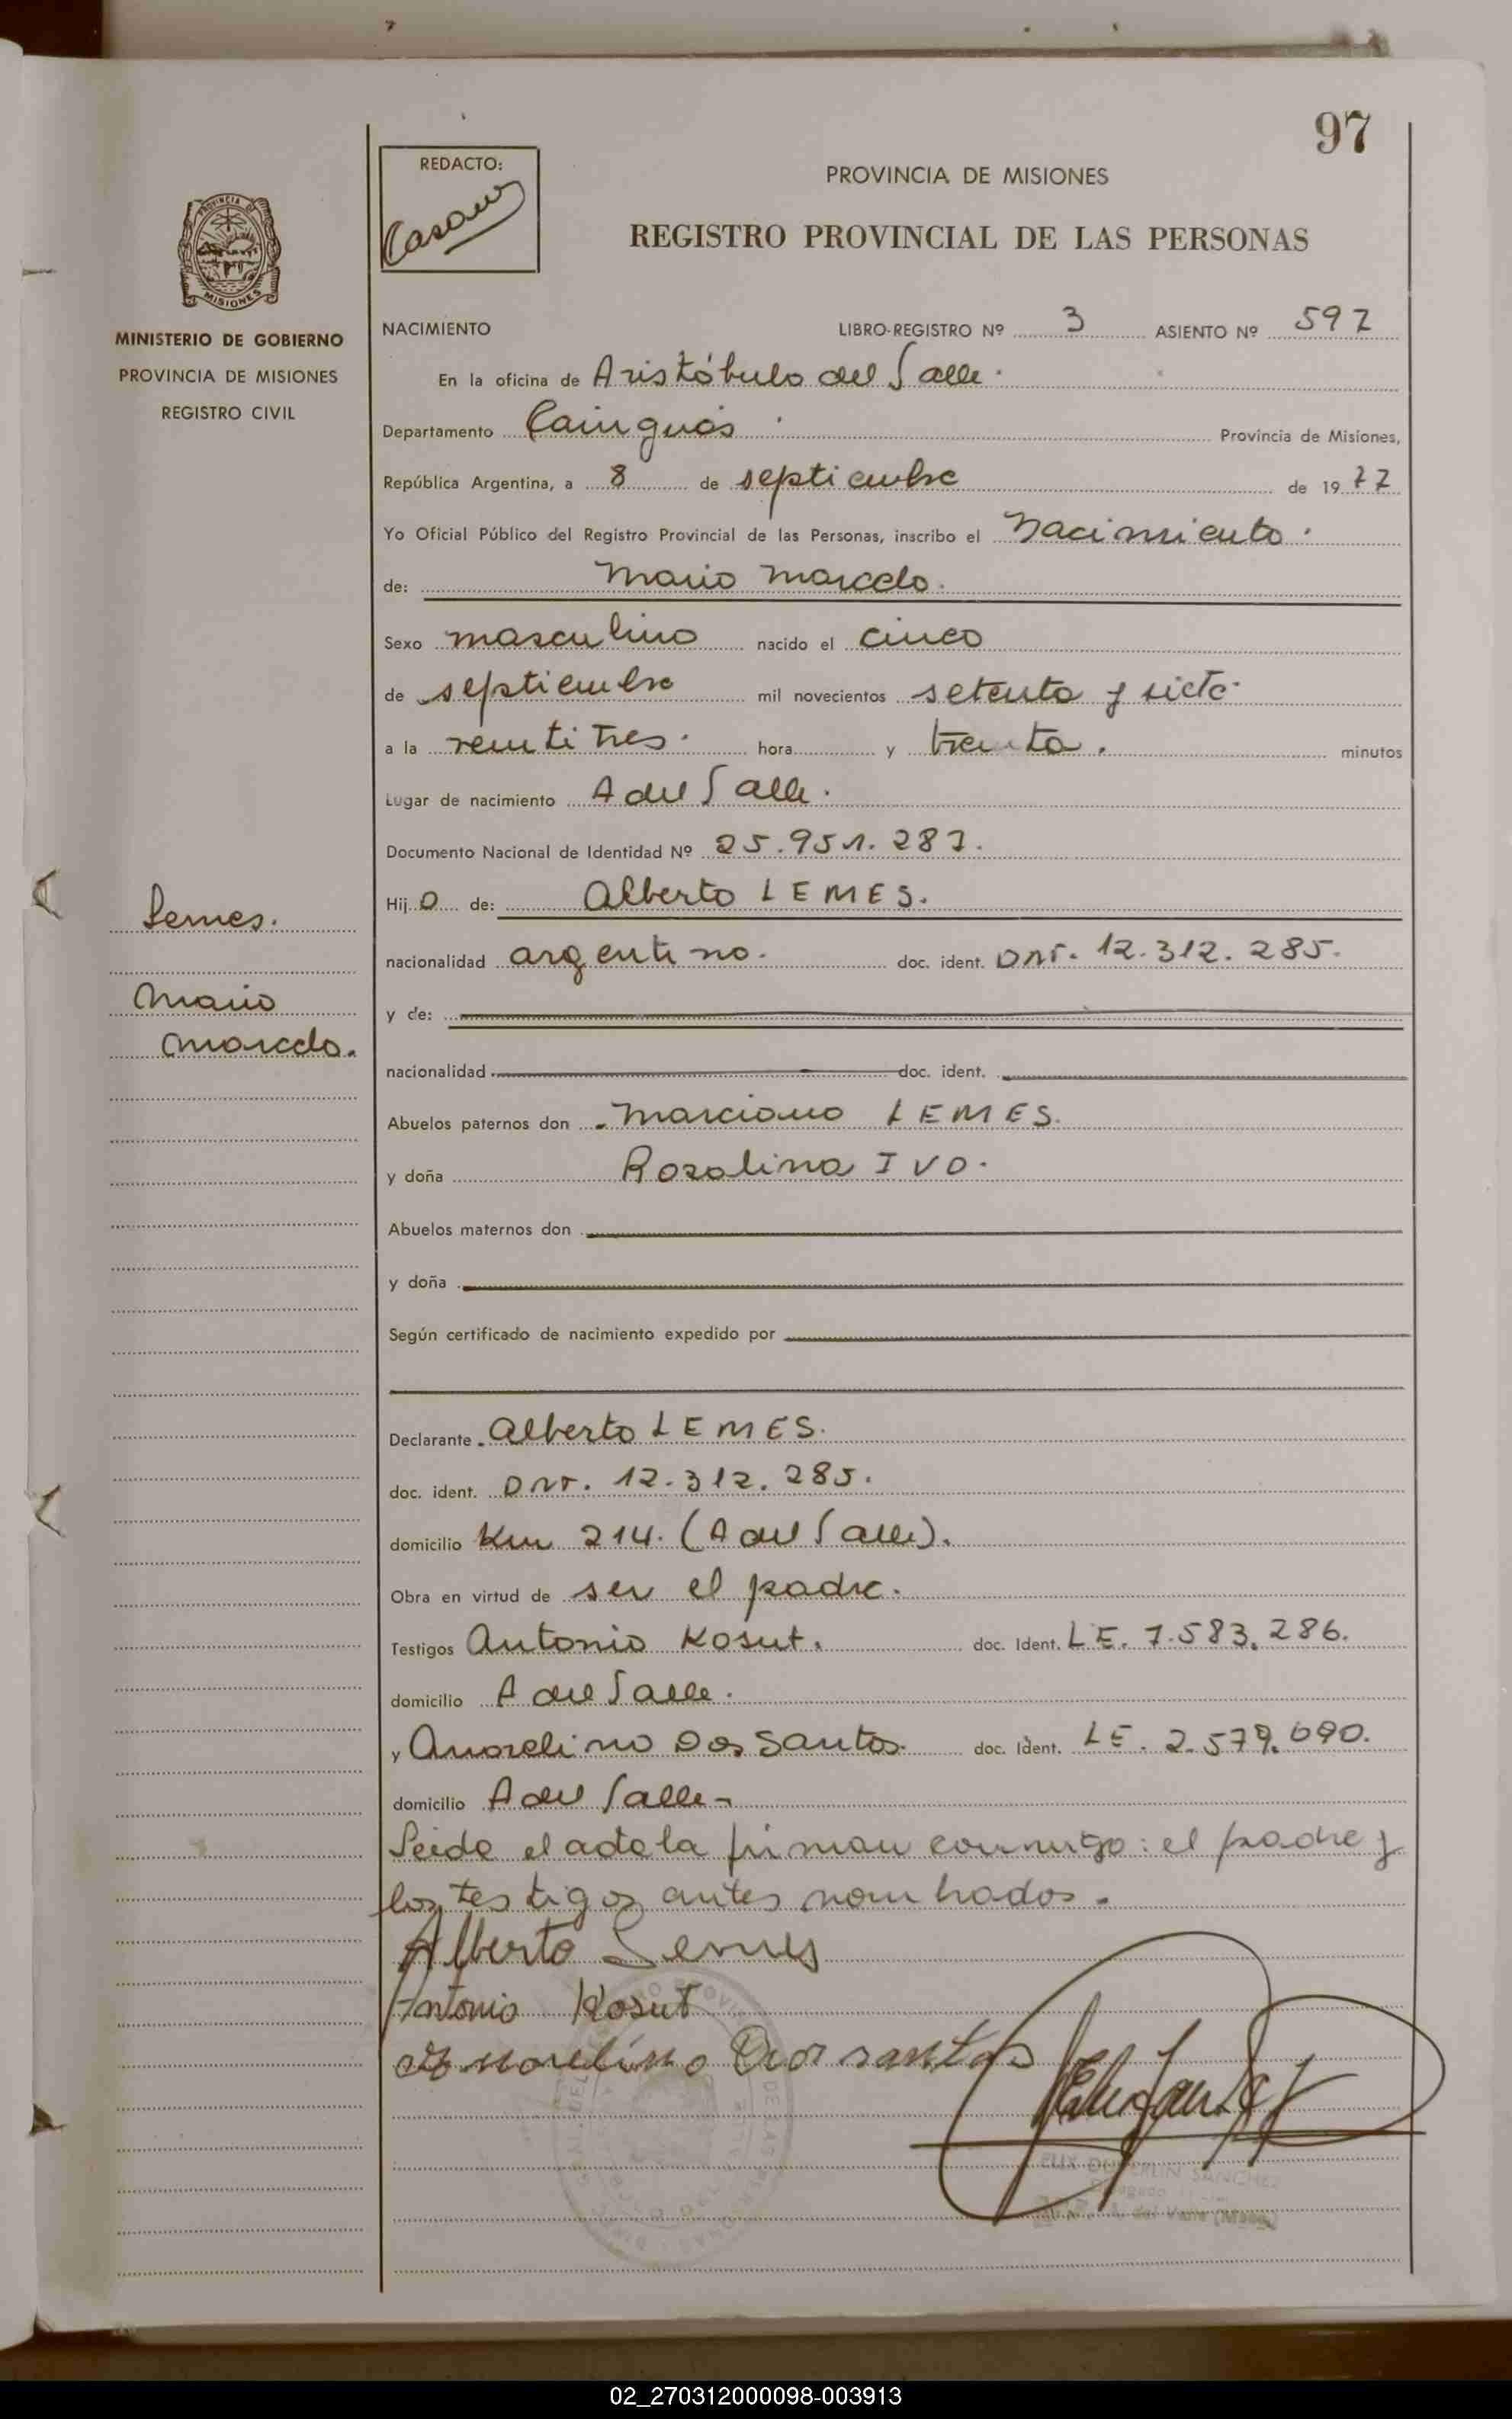 97
REDACTO:
PROVINCIA DE MISIONES
REGISTRO PROVINCIAL DE LAS PERSONAS
MISIONES
MINISTERIO DE GOBIERNO
PROVINCIA DE MISIONES
REGISTRO CIVIL
NACIMIENTO LIBRO-REGISTRO Nº 3 ASIENTO Nº 597
En la oficina de Aristóbulo del Valle.
Departamento Cainguás Provincia de Misiones,
República Argentina, a 8 de septiembre de 1977
Yo Oficial Público del Registro Provincial de las Personas, inscribo el nacimiento.
de: Mario Marcelo.
Sexo masculino nacido el cinco
de septiembre mil novecientos setenta y siete.
a la veintitres. hora y treinta. minutos
Lugar de nacimiento A del Valle.
Documento Nacional de Identidad Nº 25.951.287.
Lemes.
Hijo de: Alberto LEMES.
nacionalidad argentino. doc. ident. DNI. 12.312.285.
Mario
y de:
Marcelo.
nacionalidad doc. ident.
Abuelos paternos don Marciano LEMES.
y doña Rosalina IVO.
Abuelos maternos don
y doña
Según certificado de nacimiento expedido por
Declarante Alberto LEMES.
doc. ident. DNI. 12.312.285.
domicilio Km 214. (A del Valle).
Obra en virtud de ser el padre.
Testigos Antonio Kosut. doc. Ident. LE. 7.583.286.
domicilio A del Valle.
y Amorelino Dos Santos. doc. Ident. LE. 2.579.090.
domicilio A del Valle-
Leida el acta la firman conmigo: el padre y
los testigos antes nombrados.
Alberto Lemes
Antonio Kosut
Amorelino Dos santos
SANCHEZ
A. del Valle
02_270312000098-003913